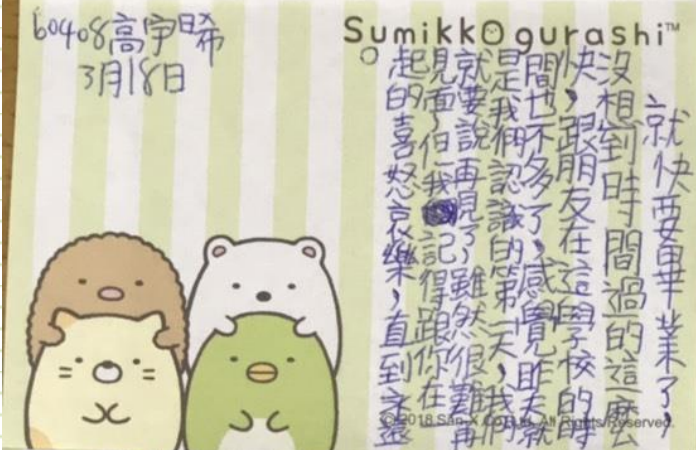 60408高宇晞
3月18日
Sumikkogurashi™
就快要畢業了，
沒相到時間過的這麼
快，跟朋友在這學校的時
間也不多了，感覺昨天就
是我們認識的第一天，我們
就要說再見了，雖然很難再
見面了但我記得跟你在一
起的喜怒哀樂，直到永遠
。
©2018 San-X Co., Ltd. All Rights Reserved.